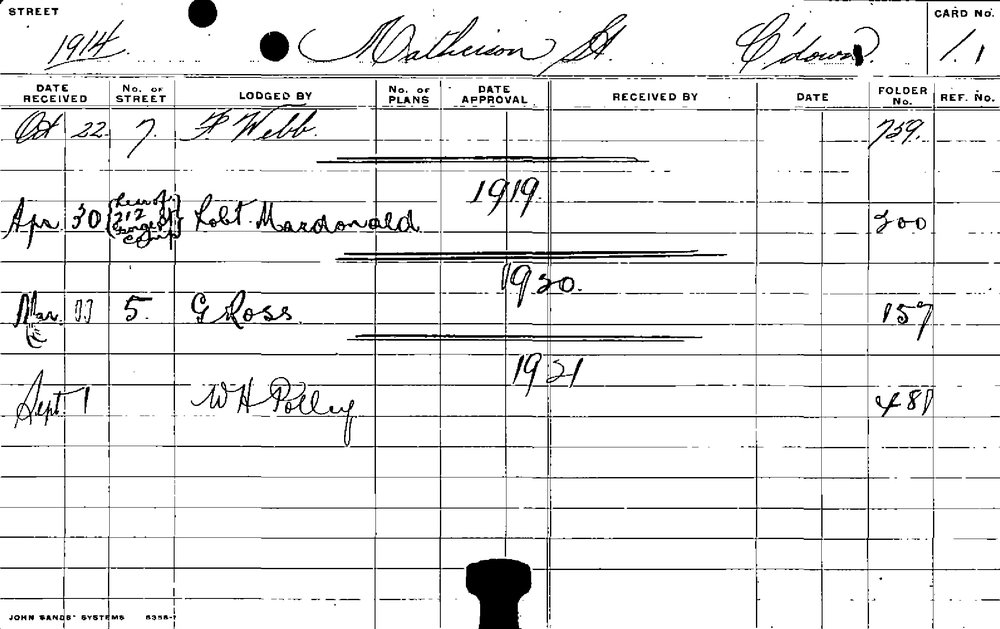 STREET
CARD No.
1914. Matheison St. C'down. 1.1
DATE RECEIVED No. OF STREET LODGED BY No. OF PLANS DATE APPROVAL RECEIVED BY DATE FOLDER No. REF. No.
Oct 22. 7. F Webb. 759.
1919.
Apr. 30 {rear of 212 St} Robt. Macdonald 200
1920.
Mar. 11 5. G Ross. 157
1921
Sept 1 W H Polley 481
JOHN SANDS' SYSTEMS 6358-1